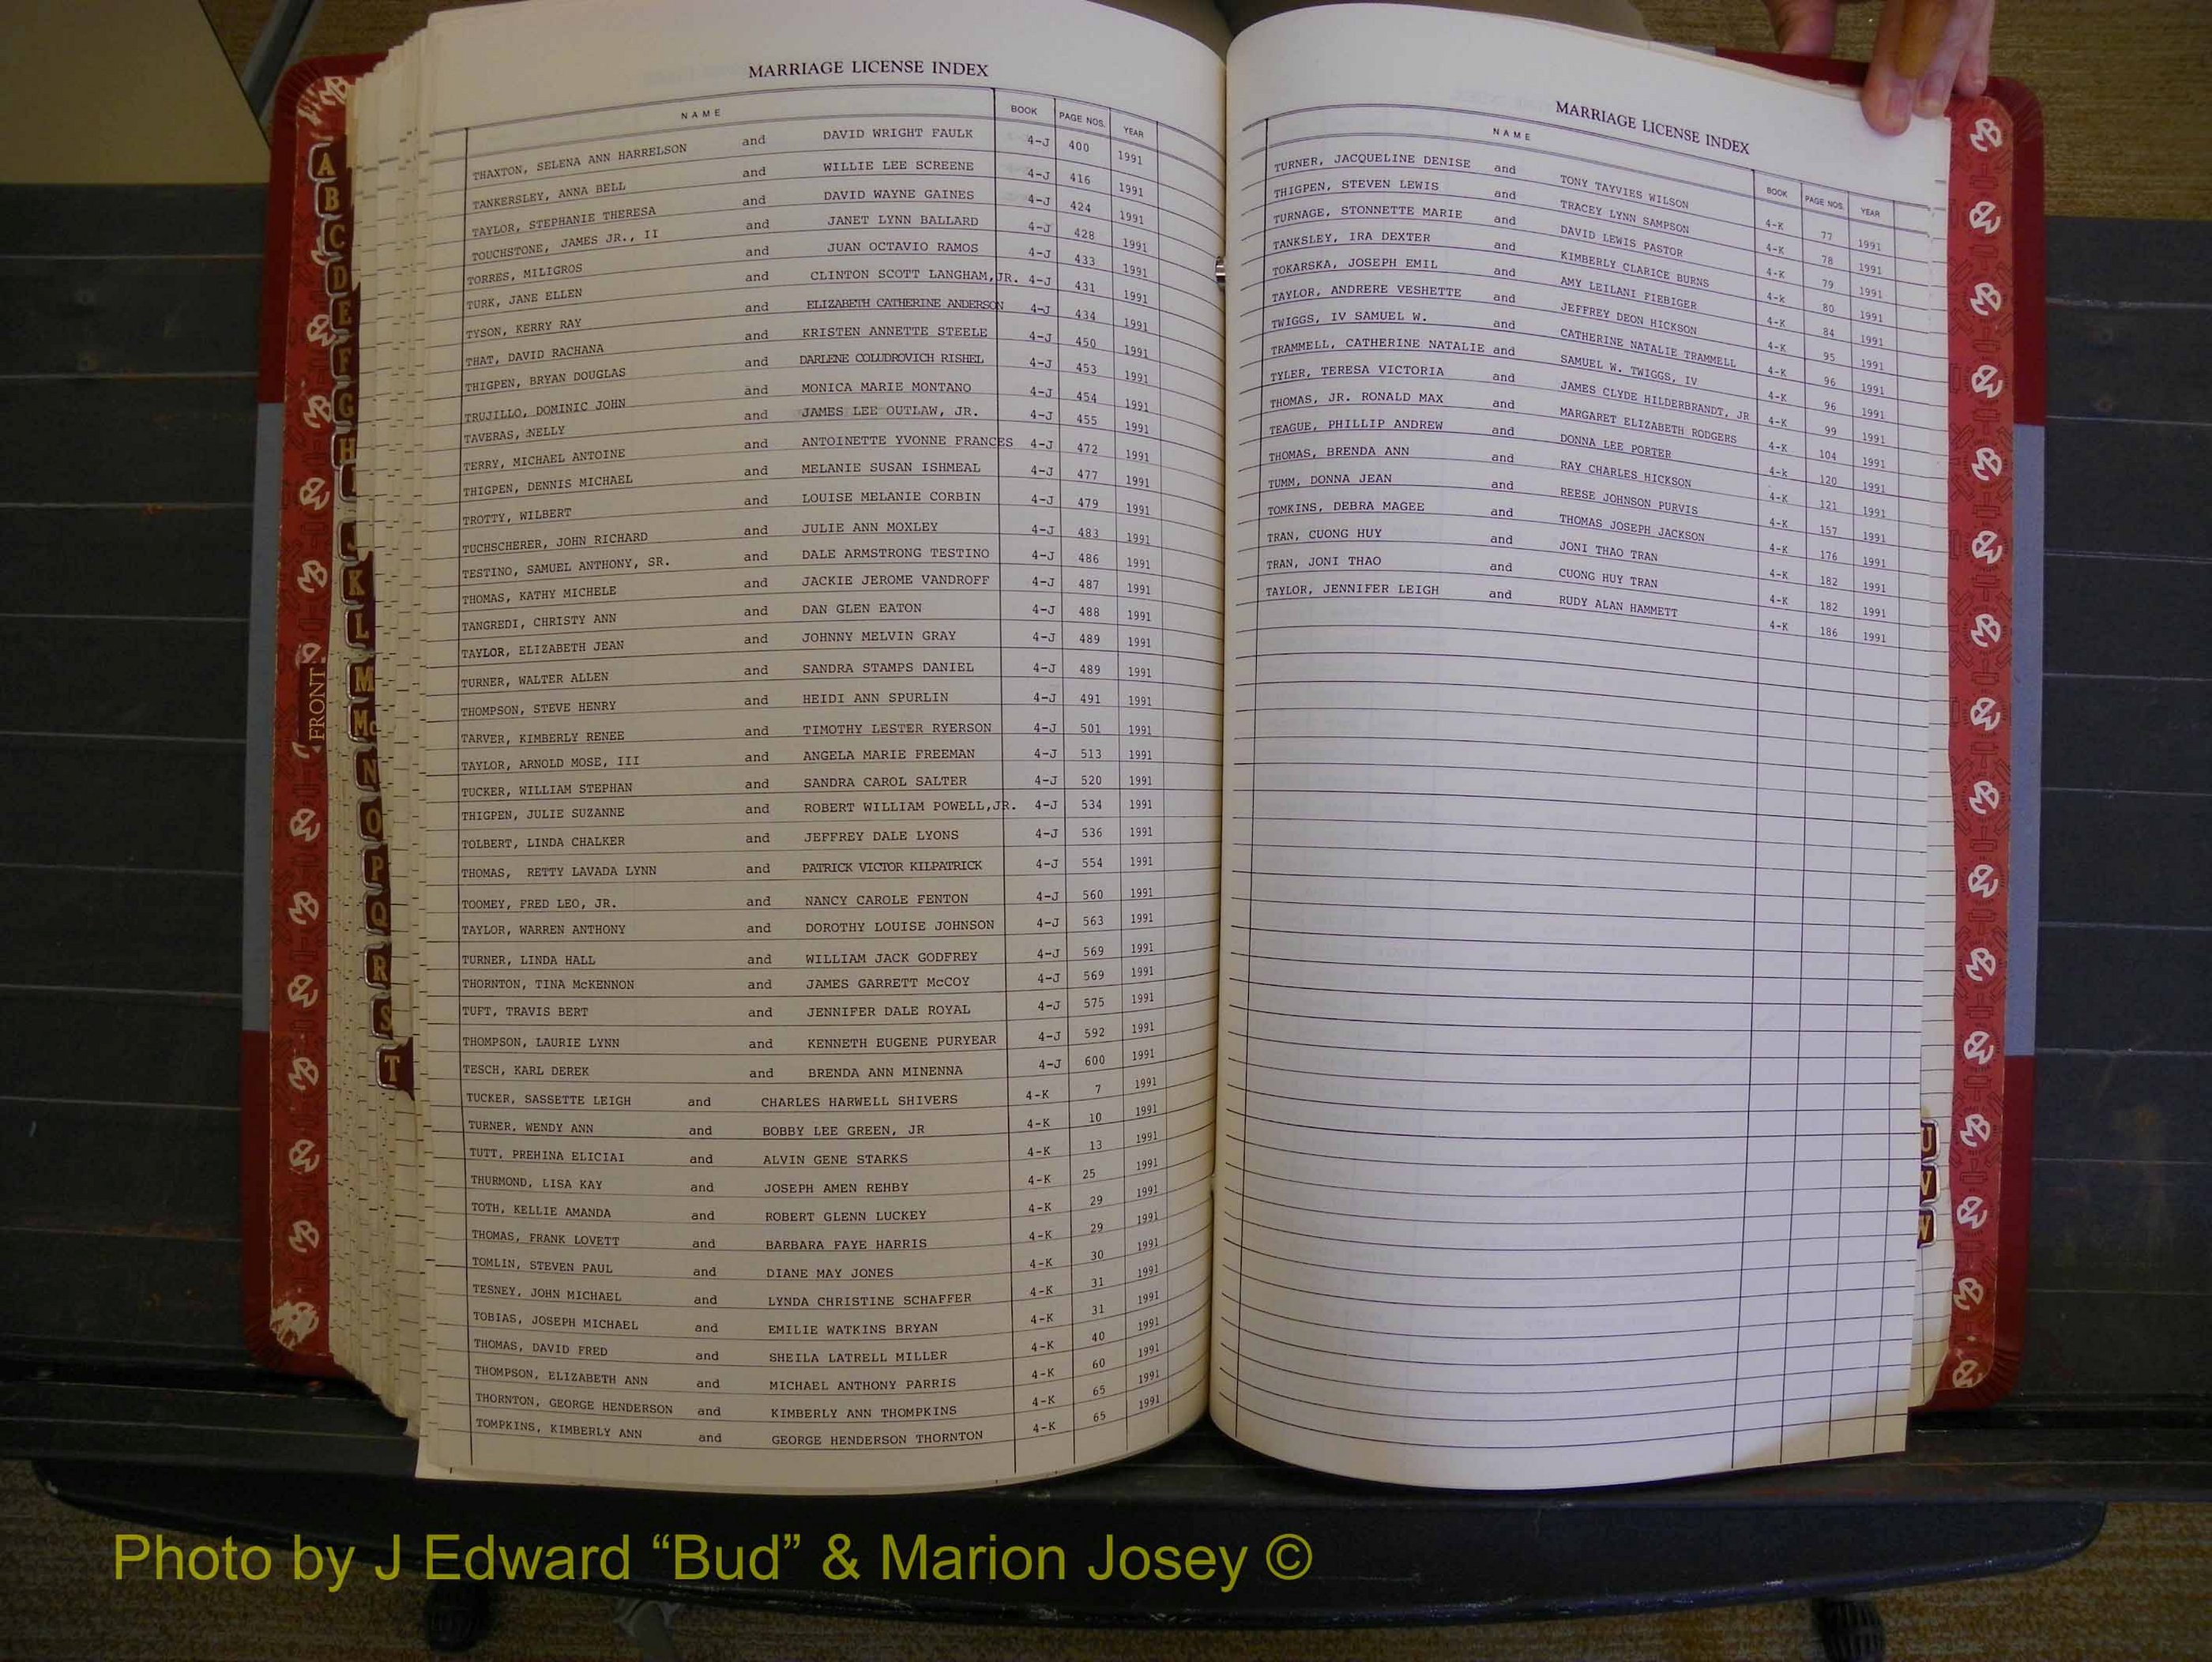 MARRIAGE LICENSE INDEX
NAME BOOK PAGE NOS. YEAR
THAXTON, SELENA ANN HARRELSON and DAVID WRIGHT FAULK 4-J 400 1991
TANKERSLEY, ANNA BELL and WILLIE LEE SCREENE 4-J 416 1991
TAYLOR, STEPHANIE THERESA and DAVID WAYNE GAINES 4-J 424 1991
TOUCHSTONE, JAMES JR., II and JANET LYNN BALLARD 4-J 428 1991
TORRES, MILIGROS and JUAN OCTAVIO RAMOS 4-J 433 1991
TURK, JANE ELLEN and CLINTON SCOTT LANGHAM, JR. 4-J 431 1991
TYSON, KERRY RAY and ELIZABETH CATHERINE ANDERSON 4-J 434 1991
THAT, DAVID RACHANA and KRISTEN ANNETTE STEELE 4-J 450 1991
THIGPEN, BRYAN DOUGLAS and DARLENE COLUDROVICH RISHEL 4-J 453 1991
TRUJILLO, DOMINIC JOHN and MONICA MARIE MONTANO 4-J 454 1991
TAVERAS, NELLY and JAMES LEE OUTLAW, JR. 4-J 455 1991
TERRY, MICHAEL ANTOINE and ANTOINETTE YVONNE FRANCES 4-J 472 1991
THIGPEN, DENNIS MICHAEL and MELANIE SUSAN ISHMEAL 4-J 477 1991
TROTTY, WILBERT and LOUISE MELANIE CORBIN 4-J 479 1991
TUCHSCHERER, JOHN RICHARD and JULIE ANN MOXLEY 4-J 483 1991
TESTINO, SAMUEL ANTHONY, SR. and DALE ARMSTRONG TESTINO 4-J 486 1991
THOMAS, KATHY MICHELE and JACKIE JEROME VANDROFF 4-J 487 1991
TANGREDI, CHRISTY ANN and DAN GLEN EATON 4-J 488 1991
TAYLOR, ELIZABETH JEAN and JOHNNY MELVIN GRAY 4-J 489 1991
TURNER, WALTER ALLEN and SANDRA STAMPS DANIEL 4-J 489 1991
THOMPSON, STEVE HENRY and HEIDI ANN SPURLIN 4-J 491 1991
TARVER, KIMBERLY RENEE and TIMOTHY LESTER RYERSON 4-J 501 1991
TAYLOR, ARNOLD MOSE, III and ANGELA MARIE FREEMAN 4-J 513 1991
TUCKER, WILLIAM STEPHAN and SANDRA CAROL SALTER 4-J 520 1991
THIGPEN, JULIE SUZANNE and ROBERT WILLIAM POWELL, JR. 4-J 534 1991
TOLBERT, LINDA CHALKER and JEFFREY DALE LYONS 4-J 536 1991
THOMAS, RETTY LAVADA LYNN and PATRICK VICTOR KILPATRICK 4-J 554 1991
TOOMEY, FRED LEO, JR. and NANCY CAROLE FENTON 4-J 560 1991
TAYLOR, WARREN ANTHONY and DOROTHY LOUISE JOHNSON 4-J 563 1991
TURNER, LINDA HALL and WILLIAM JACK GODFREY 4-J 569 1991
THORNTON, TINA McKENNON and JAMES GARRETT McCOY 4-J 569 1991
TUFT, TRAVIS BERT and JENNIFER DALE ROYAL 4-J 575 1991
THOMPSON, LAURIE LYNN and KENNETH EUGENE PURYEAR 4-J 592 1991
TESCH, KARL DEREK and BRENDA ANN MINENNA 4-J 600 1991
TUCKER, SASSETTE LEIGH and CHARLES HARWELL SHIVERS 4-K 7 1991
TURNER, WENDY ANN and BOBBY LEE GREEN, JR 4-K 10 1991
TUTT, PREHINA ELICIAI and ALVIN GENE STARKS 4-K 13 1991
THURMOND, LISA KAY and JOSEPH AMEN REHBY 4-K 25 1991
TOTH, KELLIE AMANDA and ROBERT GLENN LUCKEY 4-K 29 1991
THOMAS, FRANK LOVETT and BARBARA FAYE HARRIS 4-K 29 1991
TOMLIN, STEVEN PAUL and DIANE MAY JONES 4-K 30 1991
TESNEY, JOHN MICHAEL and LYNDA CHRISTINE SCHAFFER 4-K 31 1991
TOBIAS, JOSEPH MICHAEL and EMILIE WATKINS BRYAN 4-K 31 1991
THOMAS, DAVID FRED and SHEILA LATRELL MILLER 4-K 40 1991
THOMPSON, ELIZABETH ANN and MICHAEL ANTHONY PARRIS 4-K 60 1991
THORNTON, GEORGE HENDERSON and KIMBERLY ANN THOMPKINS 4-K 65 1991
TOMPKINS, KIMBERLY ANN and GEORGE HENDERSON THORNTON 4-K 65 1991
MARRIAGE LICENSE INDEX
NAME BOOK PAGE NOS. YEAR
TURNER, JACQUELINE DENISE and TONY TAYVIES WILSON 4-K 77 1991
THIGPEN, STEVEN LEWIS and TRACEY LYNN SAMPSON 4-K 78 1991
TURNAGE, STONNETTE MARIE and DAVID LEWIS PASTOR 4-K 79 1991
TANKSLEY, IRA DEXTER and KIMBERLY CLARICE BURNS 4-k 80 1991
TOKARSKA, JOSEPH EMIL and AMY LEILANI FIEBIGER 4-K 84 1991
TAYLOR, ANDRERE VESHETTE and JEFFREY DEON HICKSON 4-K 95 1991
TWIGGS, IV SAMUEL W. and CATHERINE NATALIE TRAMMELL 4-K 96 1991
TRAMMELL, CATHERINE NATALIE and SAMUEL W. TWIGGS, IV 4-K 96 1991
TYLER, TERESA VICTORIA and JAMES CLYDE HILDERBRANDT, JR 4-K 99 1991
THOMAS, JR. RONALD MAX and MARGARET ELIZABETH RODGERS 4-K 104 1991
TEAGUE, PHILLIP ANDREW and DONNA LEE PORTER 4-k 120 1991
THOMAS, BRENDA ANN and RAY CHARLES HICKSON 4-K 121 1991
TUMM, DONNA JEAN and REESE JOHNSON PURVIS 4-K 157 1991
TOMKINS, DEBRA MAGEE and THOMAS JOSEPH JACKSON 4-K 176 1991
TRAN, CUONG HUY and JONI THAO TRAN 4-K 182 1991
TRAN, JONI THAO and CUONG HUY TRAN 4-K 182 1991
TAYLOR, JENNIFER LEIGH and RUDY ALAN HAMMETT 4-K 186 1991
A
B
C
D
E
F
G
H
K
L
M
Mc
N
O
P
Q
R
S
T
FRONT
U
V
W
Photo by J Edward “Bud” & Marion Josey ©